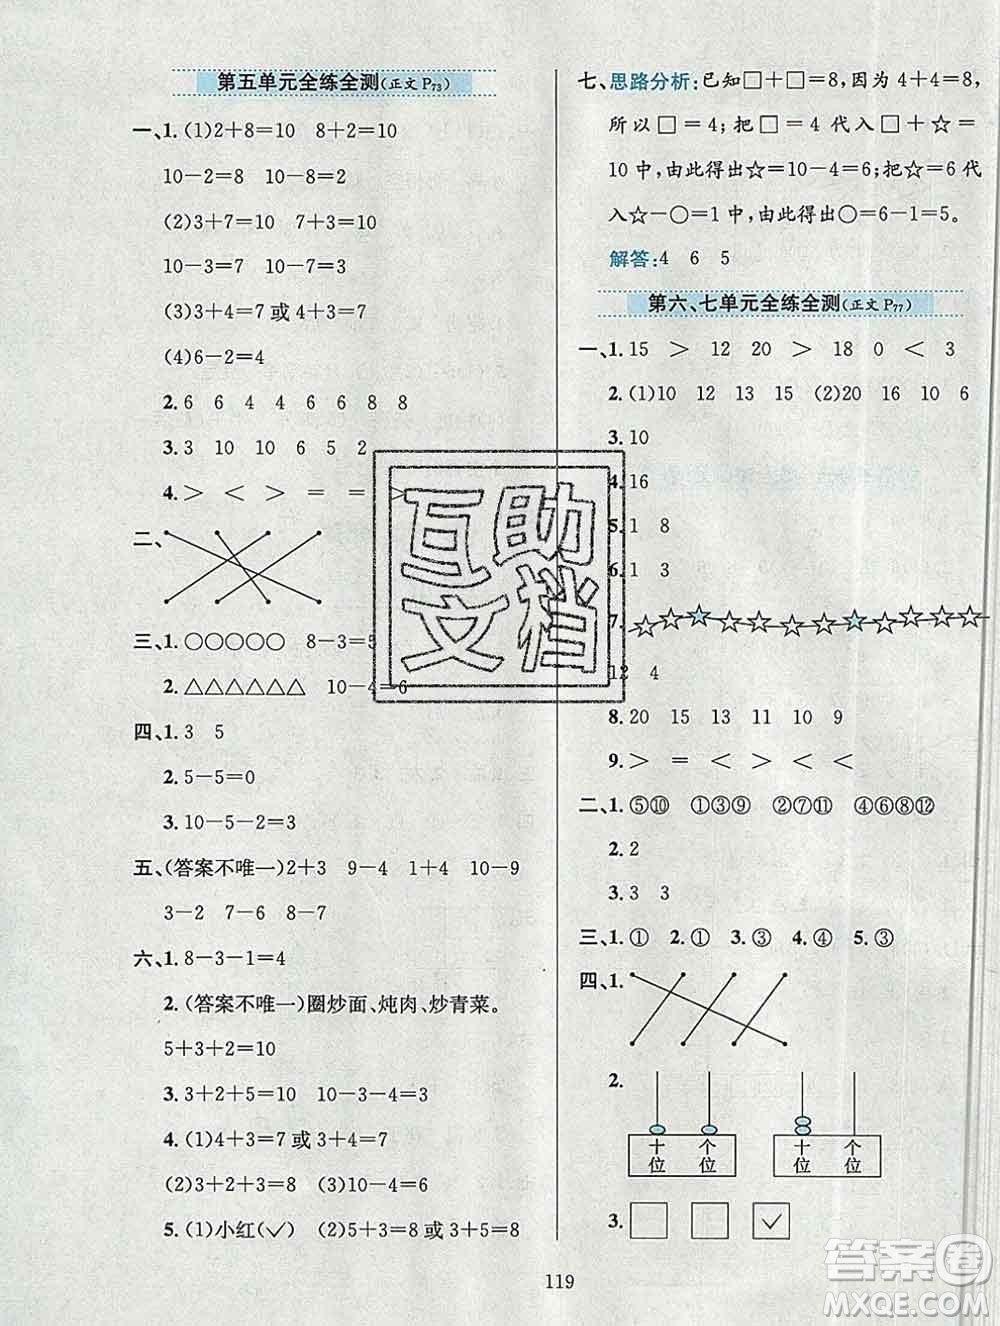 第五单元全练全测(正文 P73)
一、1. (1)2+8=10 8+2=10
10-2=8 10-8=2
(2)3+7=10 7+3=10
10-3=7 10-7=3
(3)3+4=7 或 4+3=7
(4)6-2=4
2. 6 6 4 4 6 6 8 8
3. 3 10 10 6 5 2
4. > < > = = >
二、
三、1. ○○○○○ 8-3=5
2. △△△△△△ 10-4=6
四、1. 3 5
2. 5-5=0
3. 10-5-2=3
五、(答案不唯一)2+3 9-4 1+4 10-9
3-2 7-6 8-7
六、1. 8-3-1=4
2. (答案不唯一)圈炒面、炖肉、炒青菜。
5+3+2=10
3. 3+2+5=10 10-3-4=3
4. (1)4+3=7 或 3+4=7
(2)3+2+3=8 (3)10-4=6
5. (1)小红(✓) (2)5+3=8 或 3+5=8
七、思路分析:已知□+□=8,因为 4+4=8,
所以□=4;把□=4 代入□+☆=
10 中,由此得出☆=10-4=6;把☆=6 代
入☆-○=1 中,由此得出○=6-1=5。
解答:4 6 5
第六、七单元全练全测(正文 P77)
一、1. 15 > 12 20 > 18 0 < 3
2. (1)10 12 13 15 (2)20 16 10 6
3. 10
4. 16
5. 1 8
6. 1 3
7.
12 4
8. 20 15 13 11 10 9
9. > = < > < <
二、1. ⑤⑩ ①③⑨ ②⑦⑪ ④⑥⑧⑫
2. 2
3. 3 3
三、1. ① 2. ① 3. ③ 4. ④ 5. ③
四、1.
2.
十位 个位 十位 个位
3. □ □ ✓
119
互助文档
答案圈
MXQE.COM